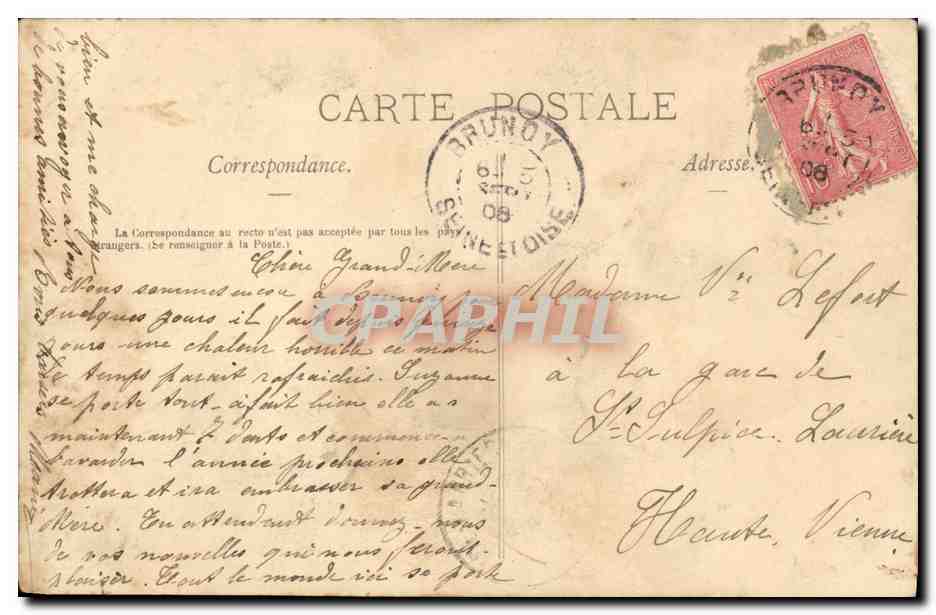 CARTE POSTALE
Correspondance.
Adresse.
La Correspondance au recto n'est pas acceptée par tous les pays
étrangers. (Se renseigner à la Poste.)
BRUNOY
SEINE ET OISE
08
BRUNOY
08
Chère Grand-Mère
Nous sommes encore à Brunoy pr
quelques jours il fait depuis quelques
jours une chaleur horrible ce matin
le temps parait rafraichis. Suzanne
se porte tout-à fait bien elle a
maintenant 7 dents et commence a
bavarder l'année prochaine elle
trottera et ira embrasser sa grand-
Mère. En attendant donnez-nous
de vos nouvelles qui nous feront
plaisir. Tout le monde ici se porte
bien et me charge
de vous envoyer a tous
de bonnes amitiés
Madame Vve Lefort
à la gare de
St Sulpice. Laurière
Haute Vienne
CPAPHIL